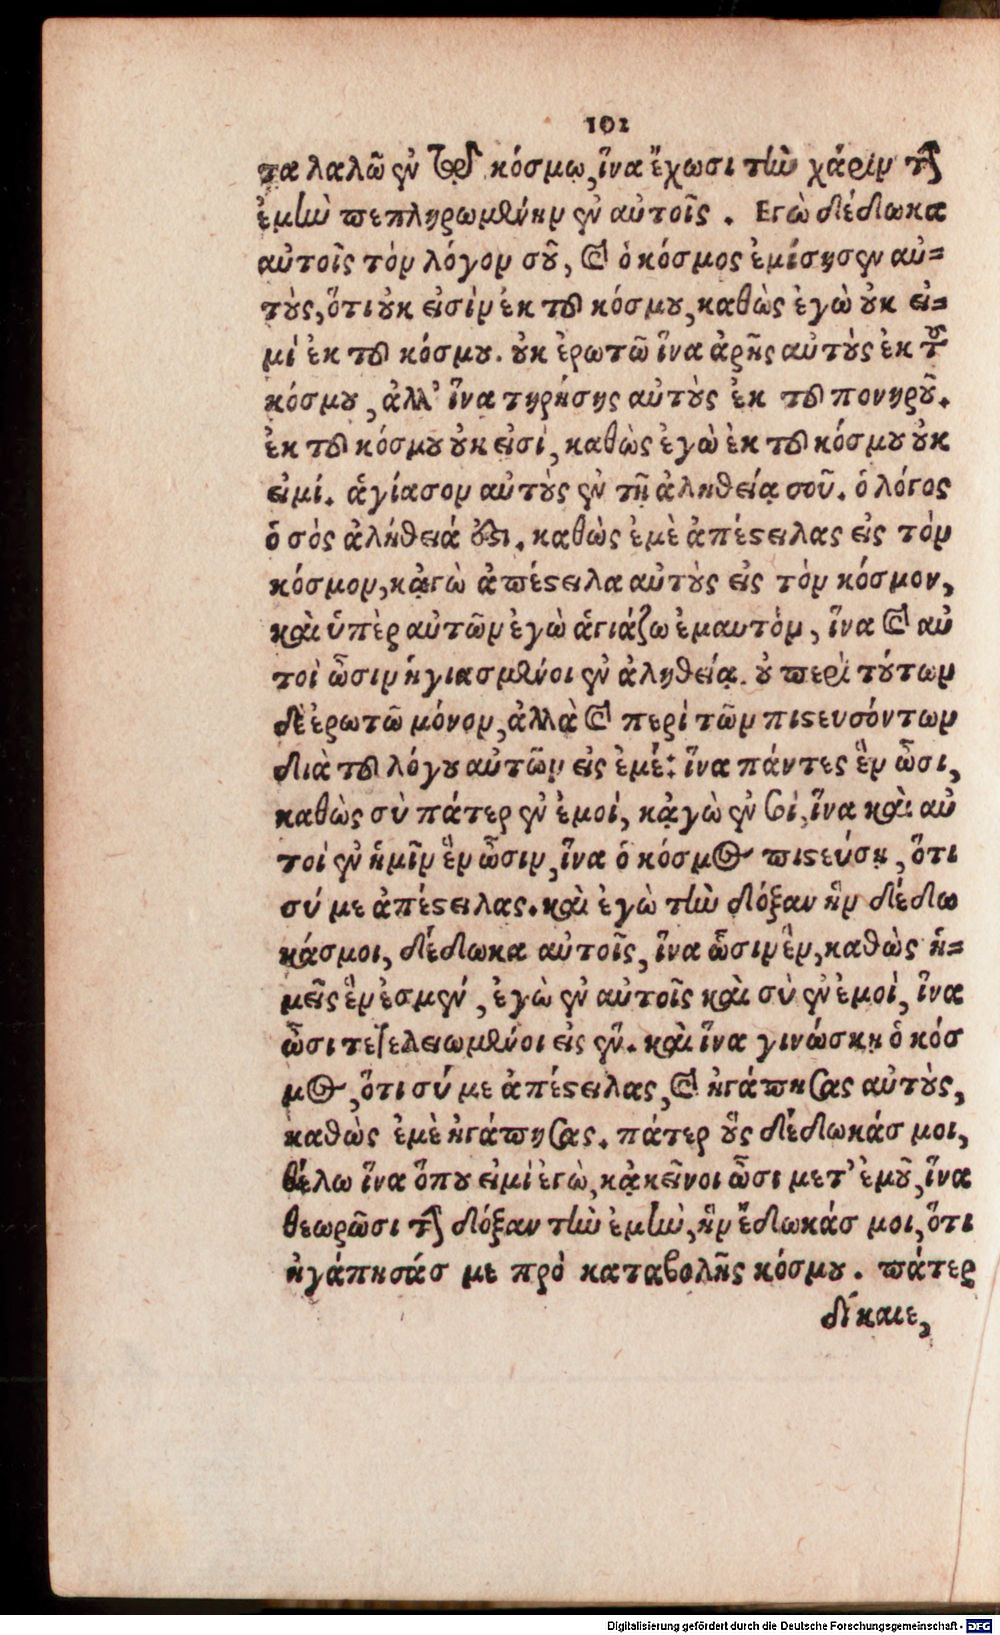 102
τα λαλῶ ἐν τῷ κόσμῳ, ἵνα ἔχωσι τὴν χάριν τὴν
ἐμὴν πεπληρωμένην ἐν αὐτοῖς . Εγὼ δέδωκα
αὐτοῖς τὸν λόγον σοῦ, καὶ ὁ κόσμος ἐμίσησεν αὐ=
τοὺς, ὅτι οὐκ εἰσὶν ἐκ τοῦ κόσμου, καθὼς ἐγὼ οὐκ εἰ=
μί ἐκ τοῦ κόσμου. οὐκ ἐρωτῶ ἵνα ἀρῇς αὐτοὺς ἐκ τοῦ
κόσμου, ἀλλ' ἵνα τηρήσῃς αὐτοὺς ἐκ τοῦ πονηροῦ.
ἐκ τοῦ κόσμου οὐκ εἰσί, καθὼς ἐγὼ ἐκ τοῦ κόσμου οὐκ
εἰμί. ἁγίασον αὐτοὺς ἐν τῇ ἀληθείᾳ σοῦ. ὁ λόγος
ὁ σὸς ἀλήθειά ἐστι. καθὼς ἐμὲ ἀπέστειλας εἰς τὸν
κόσμον, κᾀγὼ ἀπέστειλα αὐτοὺς εἰς τὸν κόσμον,
καὶ ὑπὲρ αὐτῶν ἐγὼ ἁγιάζω ἐμαυτόν, ἵνα καὶ αὐ
τοὶ ὦσιν ἡγιασμένοι ἐν ἀληθείᾳ. οὐ περὶ τούτων
δὲ ἐρωτῶ μόνον, ἀλλὰ καὶ περί τῶν πιστευσόντων
διὰ τοῦ λόγου αὐτῶν εἰς ἐμέ: ἵνα πάντες ἓν ὦσι,
καθὼς σὺ πάτερ ἐν ἐμοί, κᾀγὼ ἐν σοί, ἵνα καὶ αὐ
τοί ἐν ἡμῖν ἓν ὦσιν, ἵνα ὁ κόσμος πιστεύσῃ, ὅτι
σύ με ἀπέστειλας. καὶ ἐγὼ τὴν δόξαν ἣν δέδω
κάσμοι, δέδωκα αὐτοῖς, ἵνα ὦσιν ἓν, καθὼς ἡ=
μεῖς ἓν ἐσμέν, ἐγὼ ἐν αὐτοῖς καὶ σὺ ἐν ἐμοὶ, ἵνα
ὦσι τετελειωμένοι εἰς ἕν. καὶ ἵνα γινώσκῃ ὁ κόσ
μος, ὅτι σύ με ἀπέστειλας, καὶ ἠγάπησας αὐτοὺς,
καθὼς ἐμὲ ἠγάπησας. πάτερ οὓς δέδωκάσ μοι,
θέλω ἵνα ὅπου εἰμί ἐγὼ, κᾀκεῖνοι ὦσι μετ' ἐμοῦ, ἵνα
θεωρῶσι τὴν δόξαν τὴν ἐμὴν, ἣν ἔδωκάσ μοι, ὅτι
ἠγάπησάσ με πρὸ καταβολῆς κόσμου. πάτερ
δίκαιε,
Digitalisierung gefördert durch die Deutsche Forschungsgemeinschaft - DFG